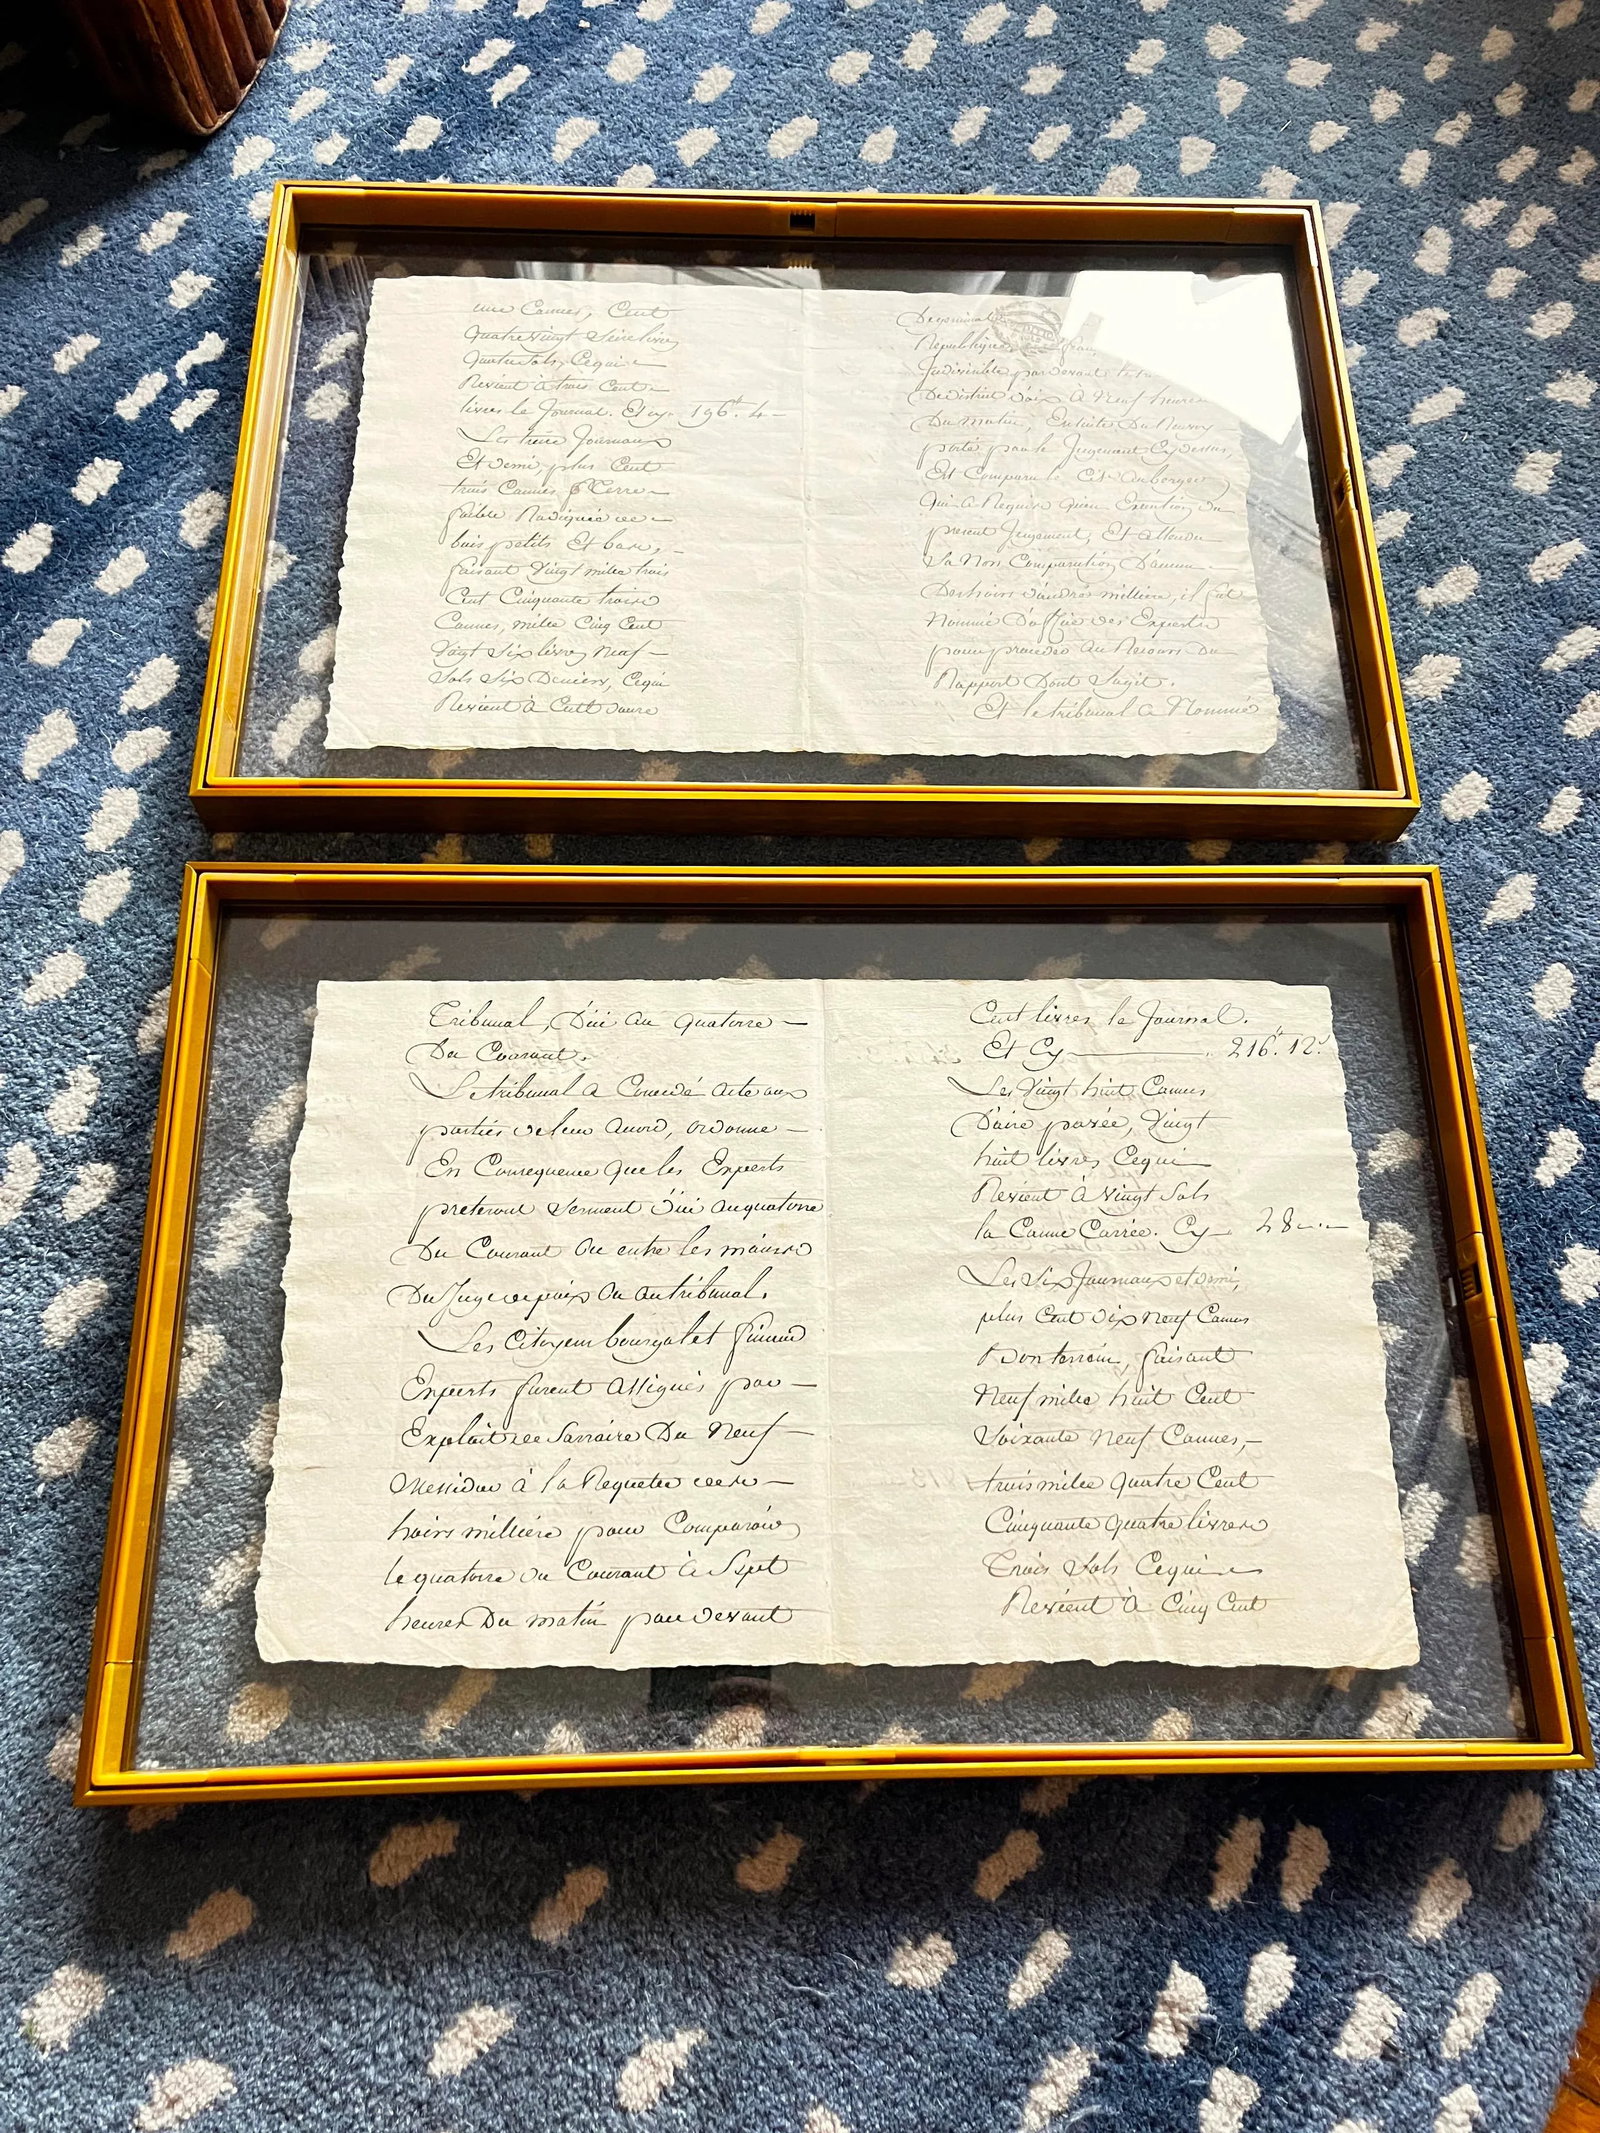 une Cannes, Cent
quatre vingt Seize livres
quatre Sols, Cequi
Revient à trois Cent
livres le Journal. Et cy. 196.# 4
Les treize Journaux
Et demi, plus Cent
trois Cannes
faible
bois petits Et bare,
faisant Vingt mille trois
Cent Cinquante trois
Cannes, mille Cinq Cent
Vingt Six livres Neuf
Sols Six Deniers, Cequi
Revient à Cent
De
Republique
Indivisible pardevant le
De District à Neuf heures
Du Matin, Ensuite Du Renvoy
porté par le Jugement Cy dessus,
Est Comparu le Cit. Auberger
Qui a Requis Execution du
present Jugement, Et attendu
La Non Comparution
Des hoirs milliere, il fut
Nommé D'office des Experts
pour proceder Au Recours Du
Rapport Dont Sagit.
Et le tribunal a Nommé
Tribunal, D'ici au quatorze
Du Courant.
Le tribunal a Concédé Acte aux
parties de leur accord, ordonne
En Consequence que les Experts
preteront Serment D'ici au quatorze
Du Courant Ou entre les mains
Du Juge de paix Ou au tribunal.
Les Citoyens bourgalet
Experts furent Assignés par
Exploit de Du Neuf
Messidor à la Requette des
hoirs milliere pour Comparoir
le quatorze du Courant à Sept
heures Du matin par devant
Cent livres le Journal.
Et Cy 216.# 12.s
Les Vingt huit Cannes
D'aire pavée, Vingt
huit livres Cequi
Revient à Vingt Sols
la Canne Carrée. Cy 28
Les Six Journaux et demi,
plus Cent dix neuf Cannes
Bon terrain, faisant
Neuf mille huit Cent
Soixante Neuf Cannes,
trois mille quatre Cent
Cinquante quatre livres
Trois Sols Cequi
Revient à Cinq Cent